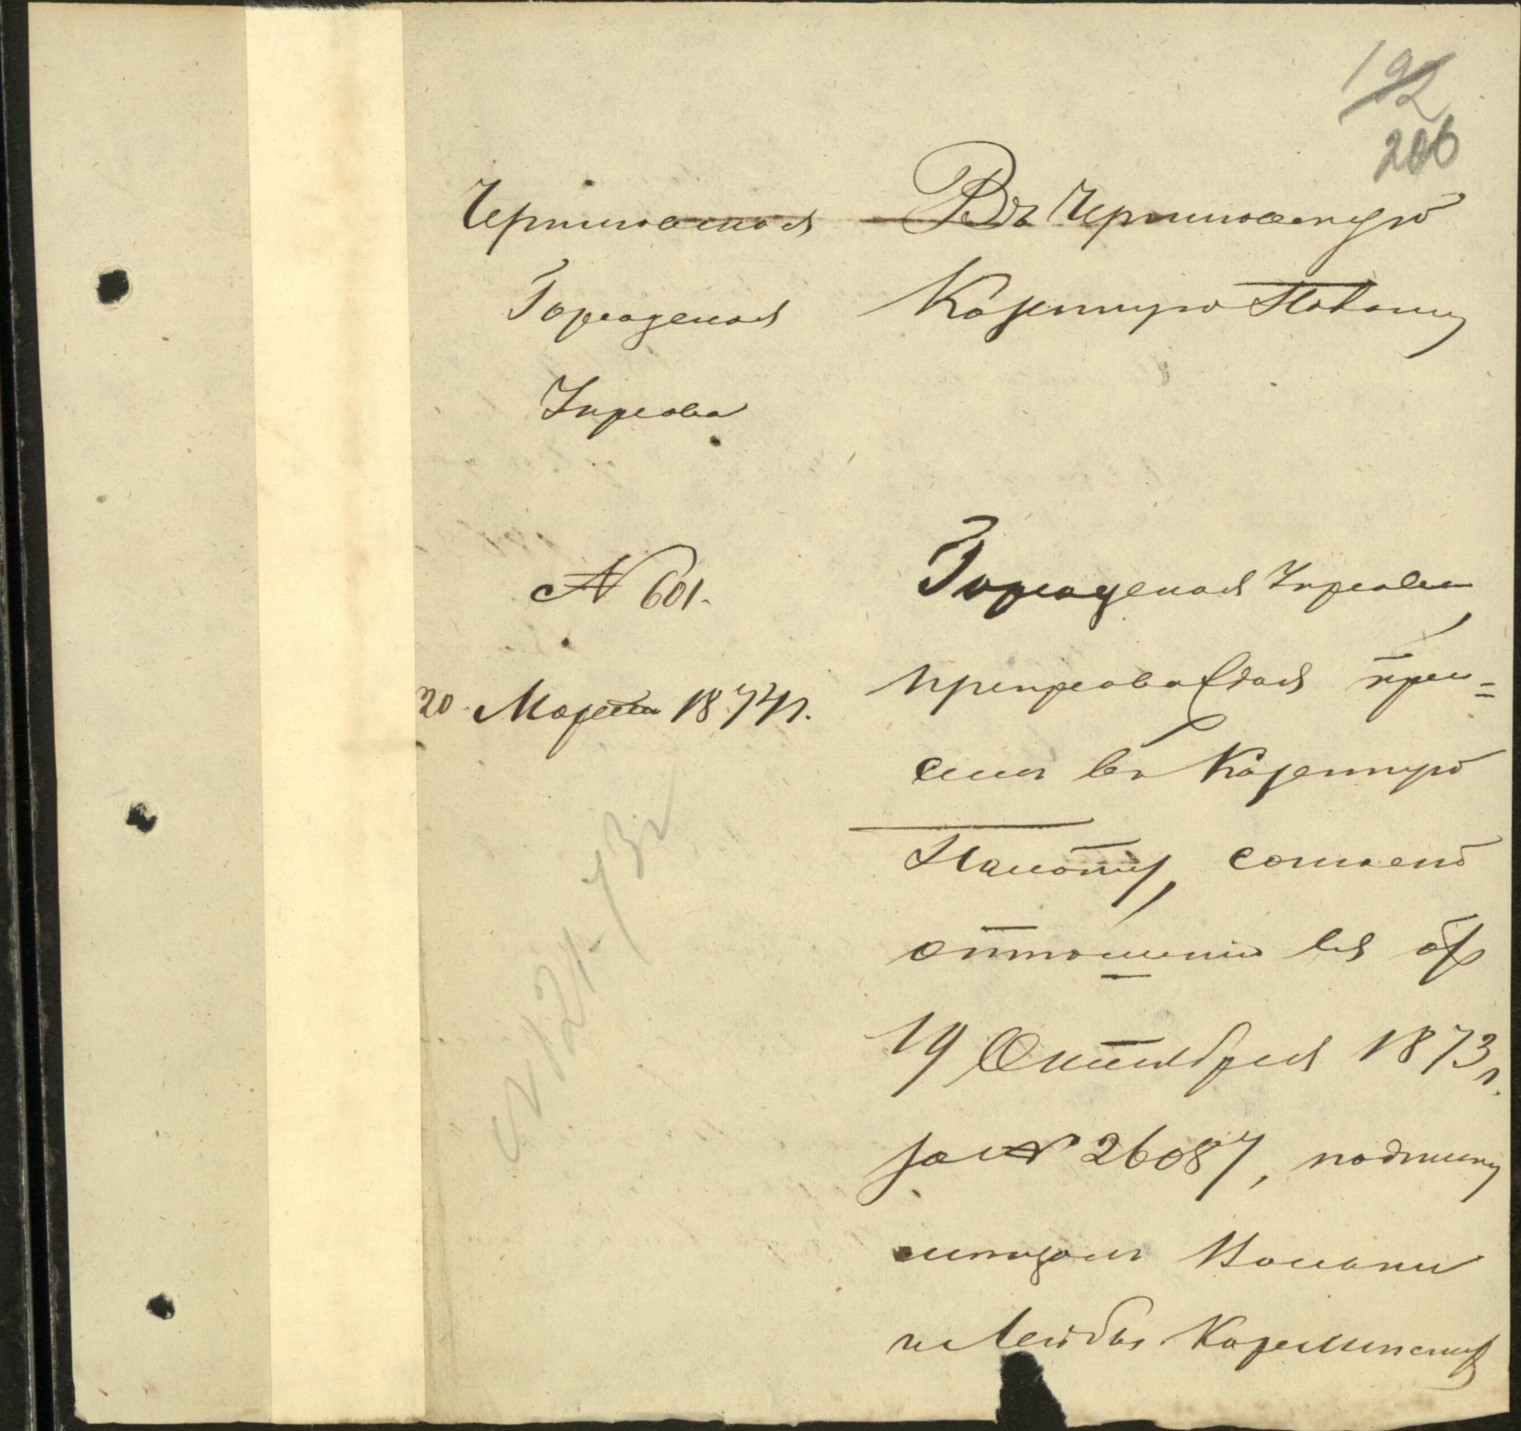 192
206
Черниговская
Городская
Управа
№ 601.
20 Марта 1874 г.
№ 121. 73 г
Въ Черниговскую
Казенную Палату
Городская Управа
препровождая при=
семъ въ Казенную
Палату, согласно
отношенію ея отъ
19 Октября 1873 г.
за № 26087, подписку
мещанъ
и Лейбы Карлинскихъ